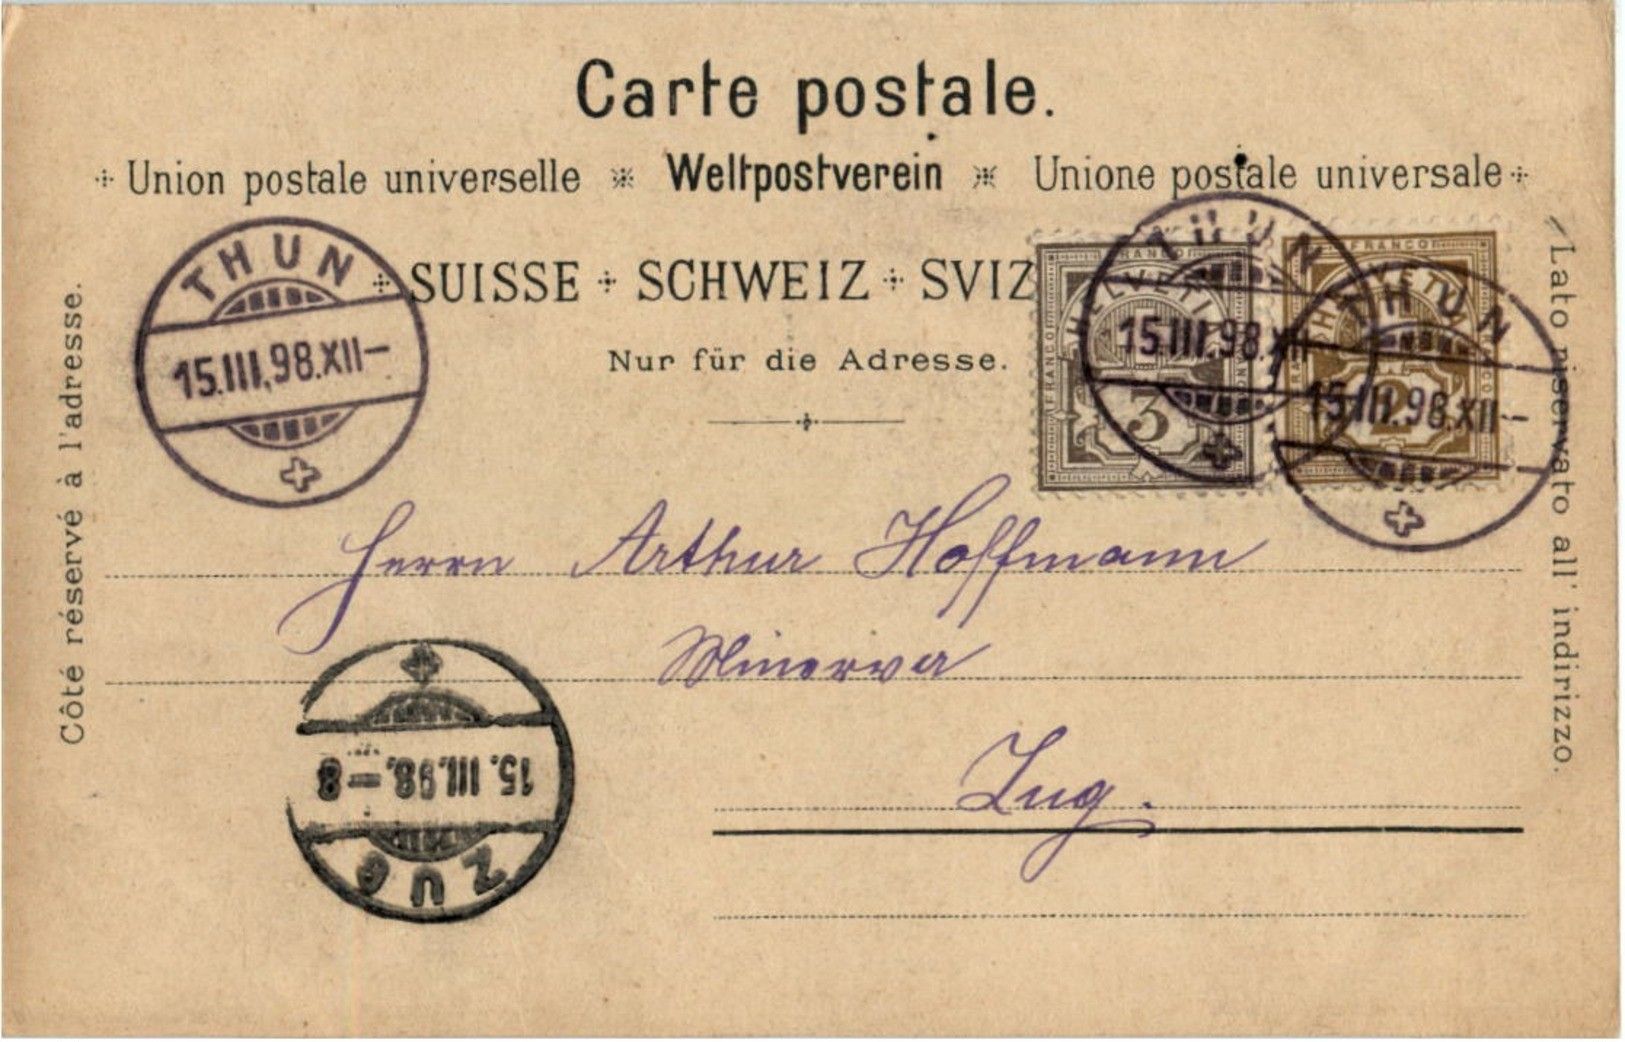 Carte postale.
Union postale universelle Weltpostverein Unione postale universale
SUISSE SCHWEIZ SVIZ
Nur für die Adresse.
THUN
15.III.98.XII-
FRANCO
HELVETIA
FRANCO
3
THUN
15.III.98.XII
FRANCO
2
THUN
15.III.98.XII-
Côté réservé à l'adresse.
Lato riservato all' indirizzo.
Herrn Arthur Hoffmann
Minerva
Zug.
15.III.98.-8
ZUG